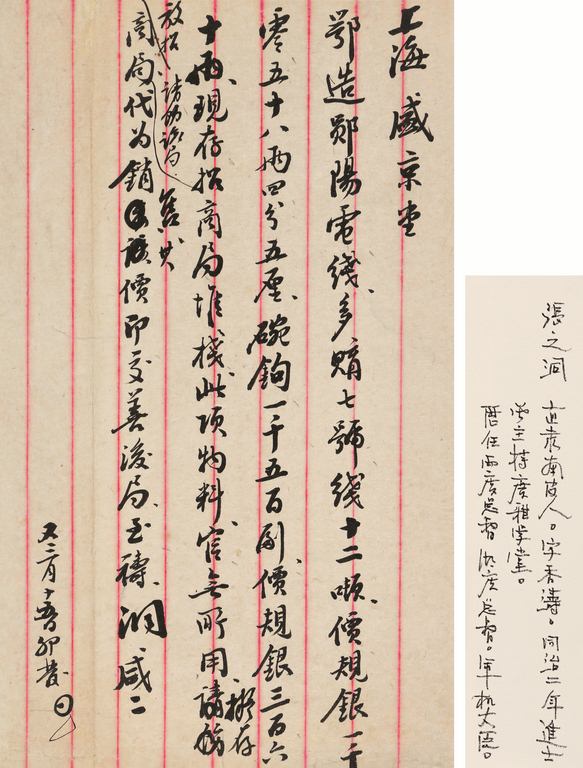 上海盛京堂
鄂造鄖陽電綫多購七號綫十二噸價規銀一千
零五十八兩四分五厘碗鉤一千五百副價規銀三百六
十兩現存招商局堆棧此項物料官無所用請飭
擬存
放招
請協該局
舊共
商局代为銷價即交善後局至禱洞咸二
又三月十五日卯發
張之洞 直隶南皮人。字香濤。同治二年進士
曾主持廣雅学堂。
歷任两廣总督 湖廣总督。軍机大臣。